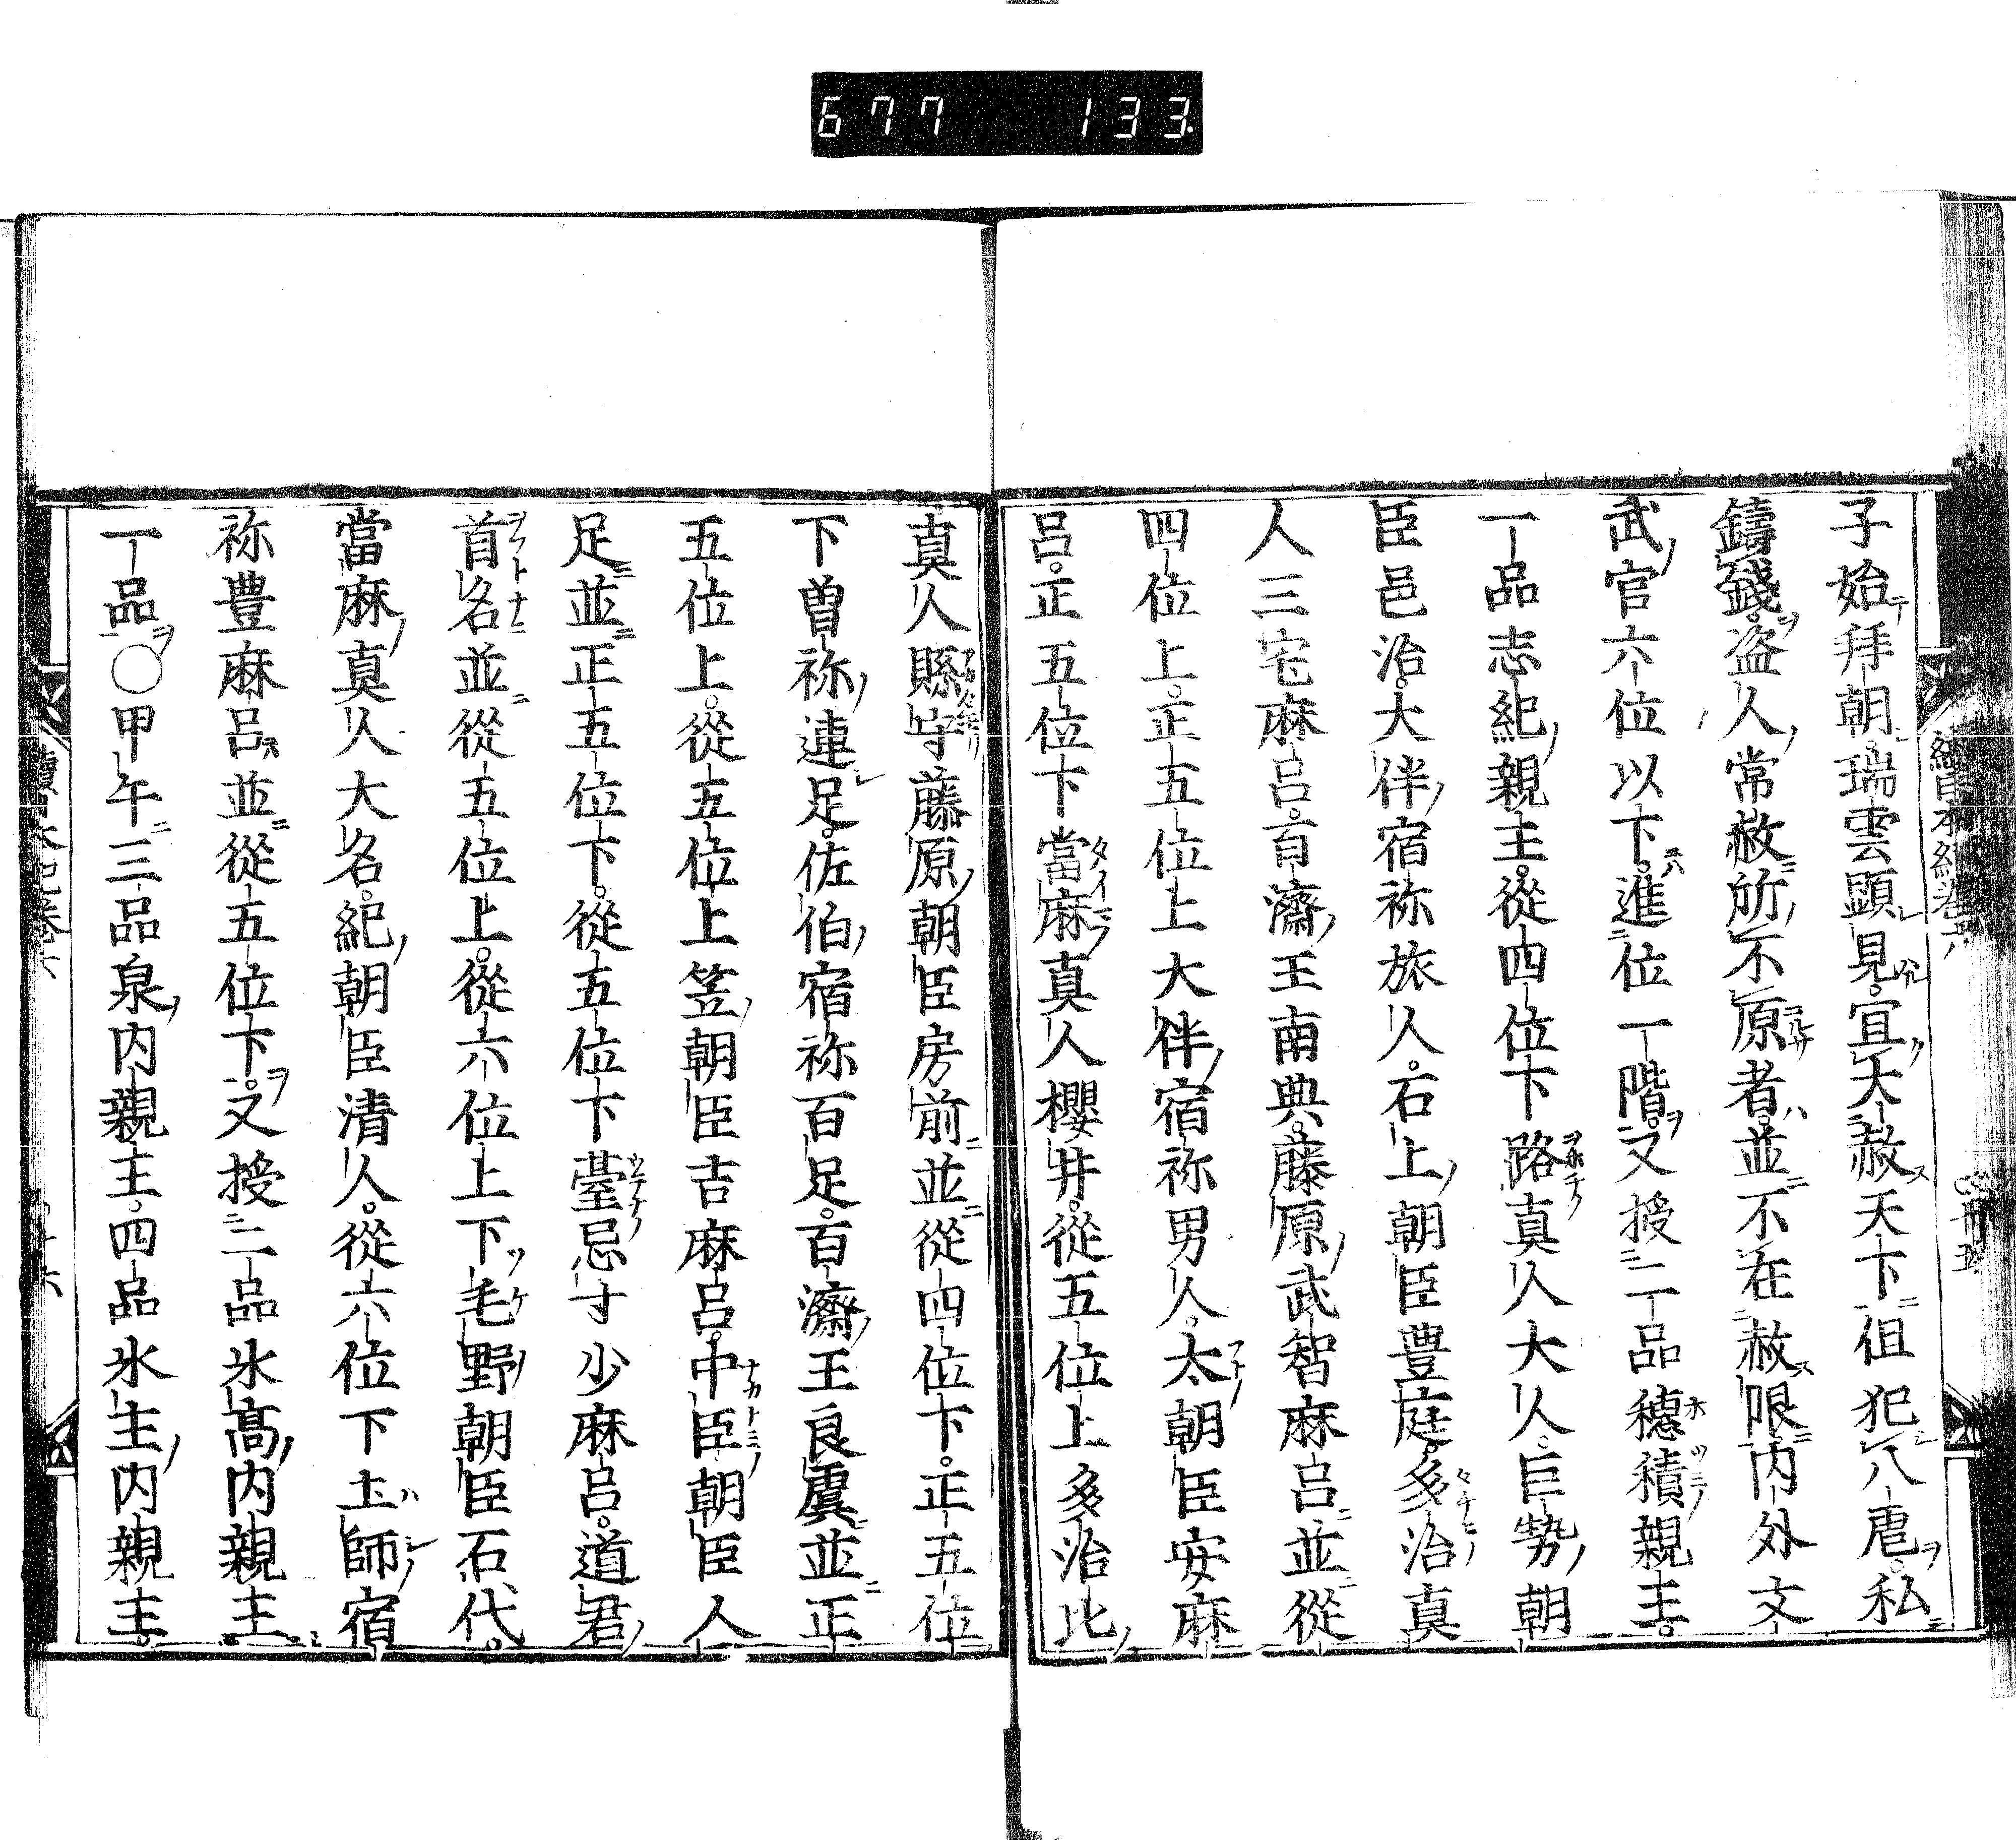 677 133
子始拜朝瑞雲顯見。宜大赦天下但犯八虐。私
鑄錢。盜人常赦所不原者。並不在赦限内外文
武官六位以下。進位一階。又授二品穗積親王。
一品志紀親王。從四位下路真人大人。巨勢朝
臣邑治。大伴宿祢旅人。石上朝臣豊庭。多治真
人三宅麻呂。百濟王南典。藤原武智麻呂並從
四位上。正五位上大伴宿祢男人。太朝臣安麻
呂。正五位下當麻真人櫻井。從五位上多治比
真人縣守藤原朝臣房前並從四位下。正五位
下曽祢連足。佐伯宿祢百足。百濟王良虞並正
五位上。從五位上笠朝臣吉麻呂。中臣朝臣人
足並正五位下。從五位下臺忌寸少麻呂。道君
首名並從五位上。從六位上下毛野朝臣石代。
當麻真人大名。紀朝臣清人。從六位下土師宿
祢豊麻呂並從五位下。又授二品氷髙内親王
一品〇甲午三品泉内親王。四品氷主内親王。